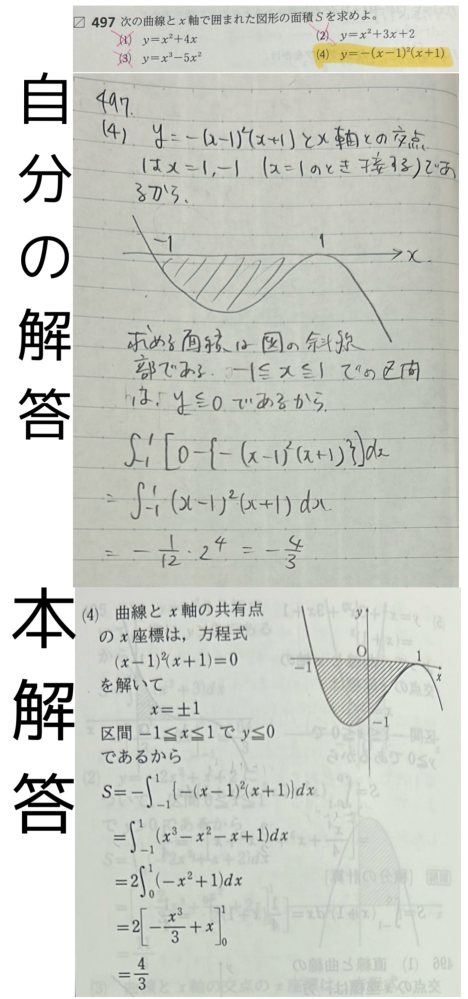 497 次の曲線とx軸で囲まれた図形の面積Sを求めよ。
(1) y=x²+4x
(2) y=x²+3x+2
(3) y=x³-5x²
(4) y=-(x-1)²(x+1)
自分の解答
497.
(4) y=-(x-1)²(x+1)とx軸との交点
はx=1,-1 (x=1のとき接する)であ
るから.
-1 1 x
求める面積は図の斜線
部である. -1≦x≦1での区間
は, y≦0であるから
∫₋₁¹[0-{-(x-1)²(x+1)}]dx
=∫₋₁¹(x-1)²(x+1)dx
=-1/12・2⁴=-4/3
本解答
(4) 曲線とx軸の共有点
のx座標は,方程式
(x-1)²(x+1)=0
を解いて
x=±1
区間 -1≦x≦1 で y≦0
であるから
y
-1 O 1 x
-1
S=-∫₋₁¹{-(x-1)²(x+1)}dx
=∫₋₁¹(x³-x²-x+1)dx
=2∫₀¹(-x²+1)dx
=2[-x³/3+x]₀¹
=4/3